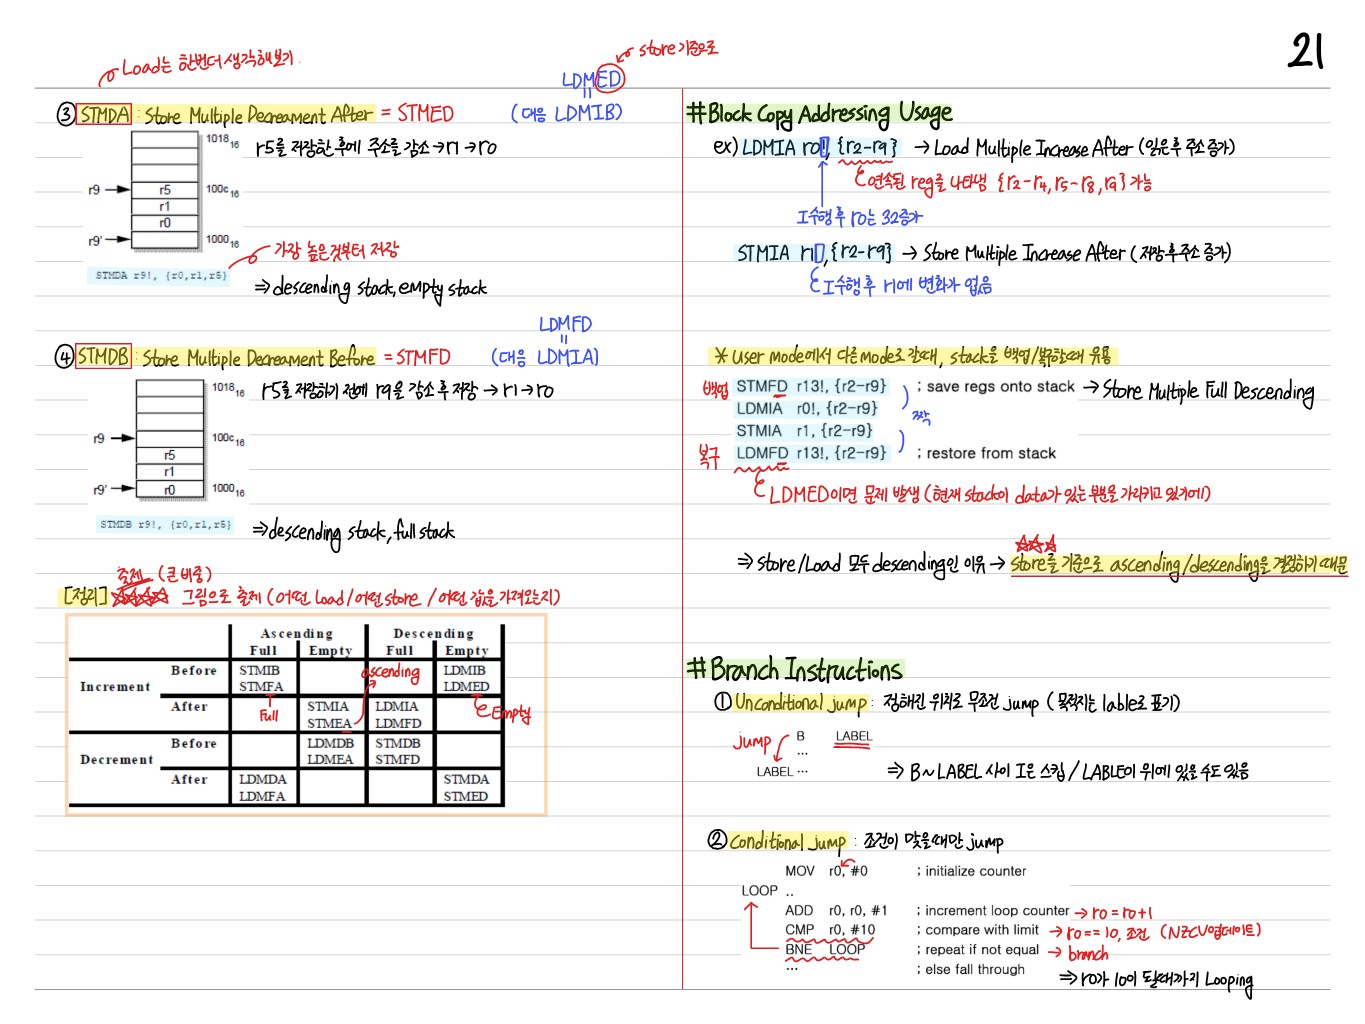 21
Load는 한번더 생각해보기.
store기준으로
LDMED
③ STMDA : Store Multiple Decreament After = STMED (대응 LDMIB)
r5를 저장한 후에 주소를 감소 → r1 → r0
1018 16
r9 → r5 100c 16
r1
r0
r9' → 1000 16
가장 높은것부터 저장
STMDA r9!, {r0,r1,r5}
⇒ descending stack, empty stack
LDMFD
④ STMDB : Store Multiple Decreament Before = STMFD (대응 LDMIA)
r5를 저장하기 전에 r9을 감소 후 저장 → r1 → r0
1018 16
r9 → 100c 16
r5
r1
r9' → r0 1000 16
STMDB r9!, {r0,r1,r5}
⇒ descending stack, full stack
출제 (큰 비중)
[정리] ☆☆☆☆ 그림으로 출제 (어떤 load/어떤 store / 어떤 값을 가져오는지)
Ascending Descending
Full Empty Full Empty
Increment Before STMIB STMFA LDMIB LDMED
Full ascending Empty
After STMIA STMEA LDMIA LDMFD
Decrement Before LDMDB LDMEA STMDB STMFD
After LDMDA LDMFA STMDA STMED
# Block Copy Addressing Usage
ex) LDMIA r0!, {r2-r9} → Load Multiple Increase After (읽은 후 주소 증가)
연속된 reg를 나타냄 {r2-r4, r5-r8, r9} 가능
I수행 후 r0는 32증가
STMIA r1, {r2-r9} → Store Multiple Increase After (저장 후 주소 증가)
I수행 후 r1에 변화가 없음
* User mode에서 다른 mode로 갈때, stack을 백업/복구할때 유용
백업 STMFD r13!, {r2-r9} ; save regs onto stack → Store Multiple Full Descending
LDMIA r0!, {r2-r9}
짝
STMIA r1, {r2-r9}
복구 LDMFD r13!, {r2-r9} ; restore from stack
LDMED이면 문제 발생 (현재 stack이 data가 있는 부분을 가리키고 있기에)
☆☆☆
⇒ Store/Load 모두 descending인 이유 → store를 기준으로 ascending/descending을 결정하기 때문
# Branch Instructions
① Unconditional jump : 정해진 위치로 무조건 jump (목적지는 lable로 표기)
jump B LABEL
...
LABEL ... ⇒ B~LABEL 사이 I은 스킵 / LABLE이 위에 있을 수도 있음
② Conditional jump : 조건이 맞을때만 jump
MOV r0, #0 ; initialize counter
LOOP ..
ADD r0, r0, #1 ; increment loop counter → r0 = r0+1
CMP r0, #10 ; compare with limit → r0 == 10, 조건 (NZCV업데이트)
BNE LOOP ; repeat if not equal → branch
... ; else fall through
⇒ r0가 10이 될때까지 Looping